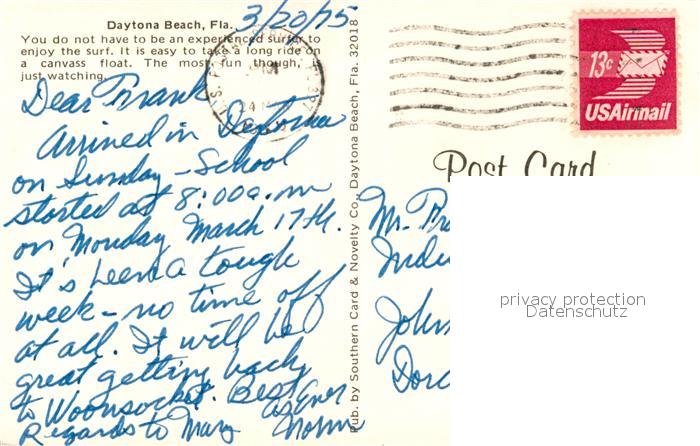 3/20/75
Daytona Beach, Fla.
You do not have to be an experienced surfer to
enjoy the surf. It is easy to take a long ride on
a canvass float. The most fun though, is
just watching.
Dear Frank
Arrived in Daytona
on Sunday - School
started at 8:00a.m
on Monday March 17th.
It's been a tough
week - no time off
at all. It will be
great getting back
to Woonsocket. Best
Regards to Mary
as Ever
Norm
Pub. by Southern Card & Novelty Co., Daytona Beach, Fla. 32018
13c
USAirmail
Post Card
Mr.
privacy protection
Datenschutz